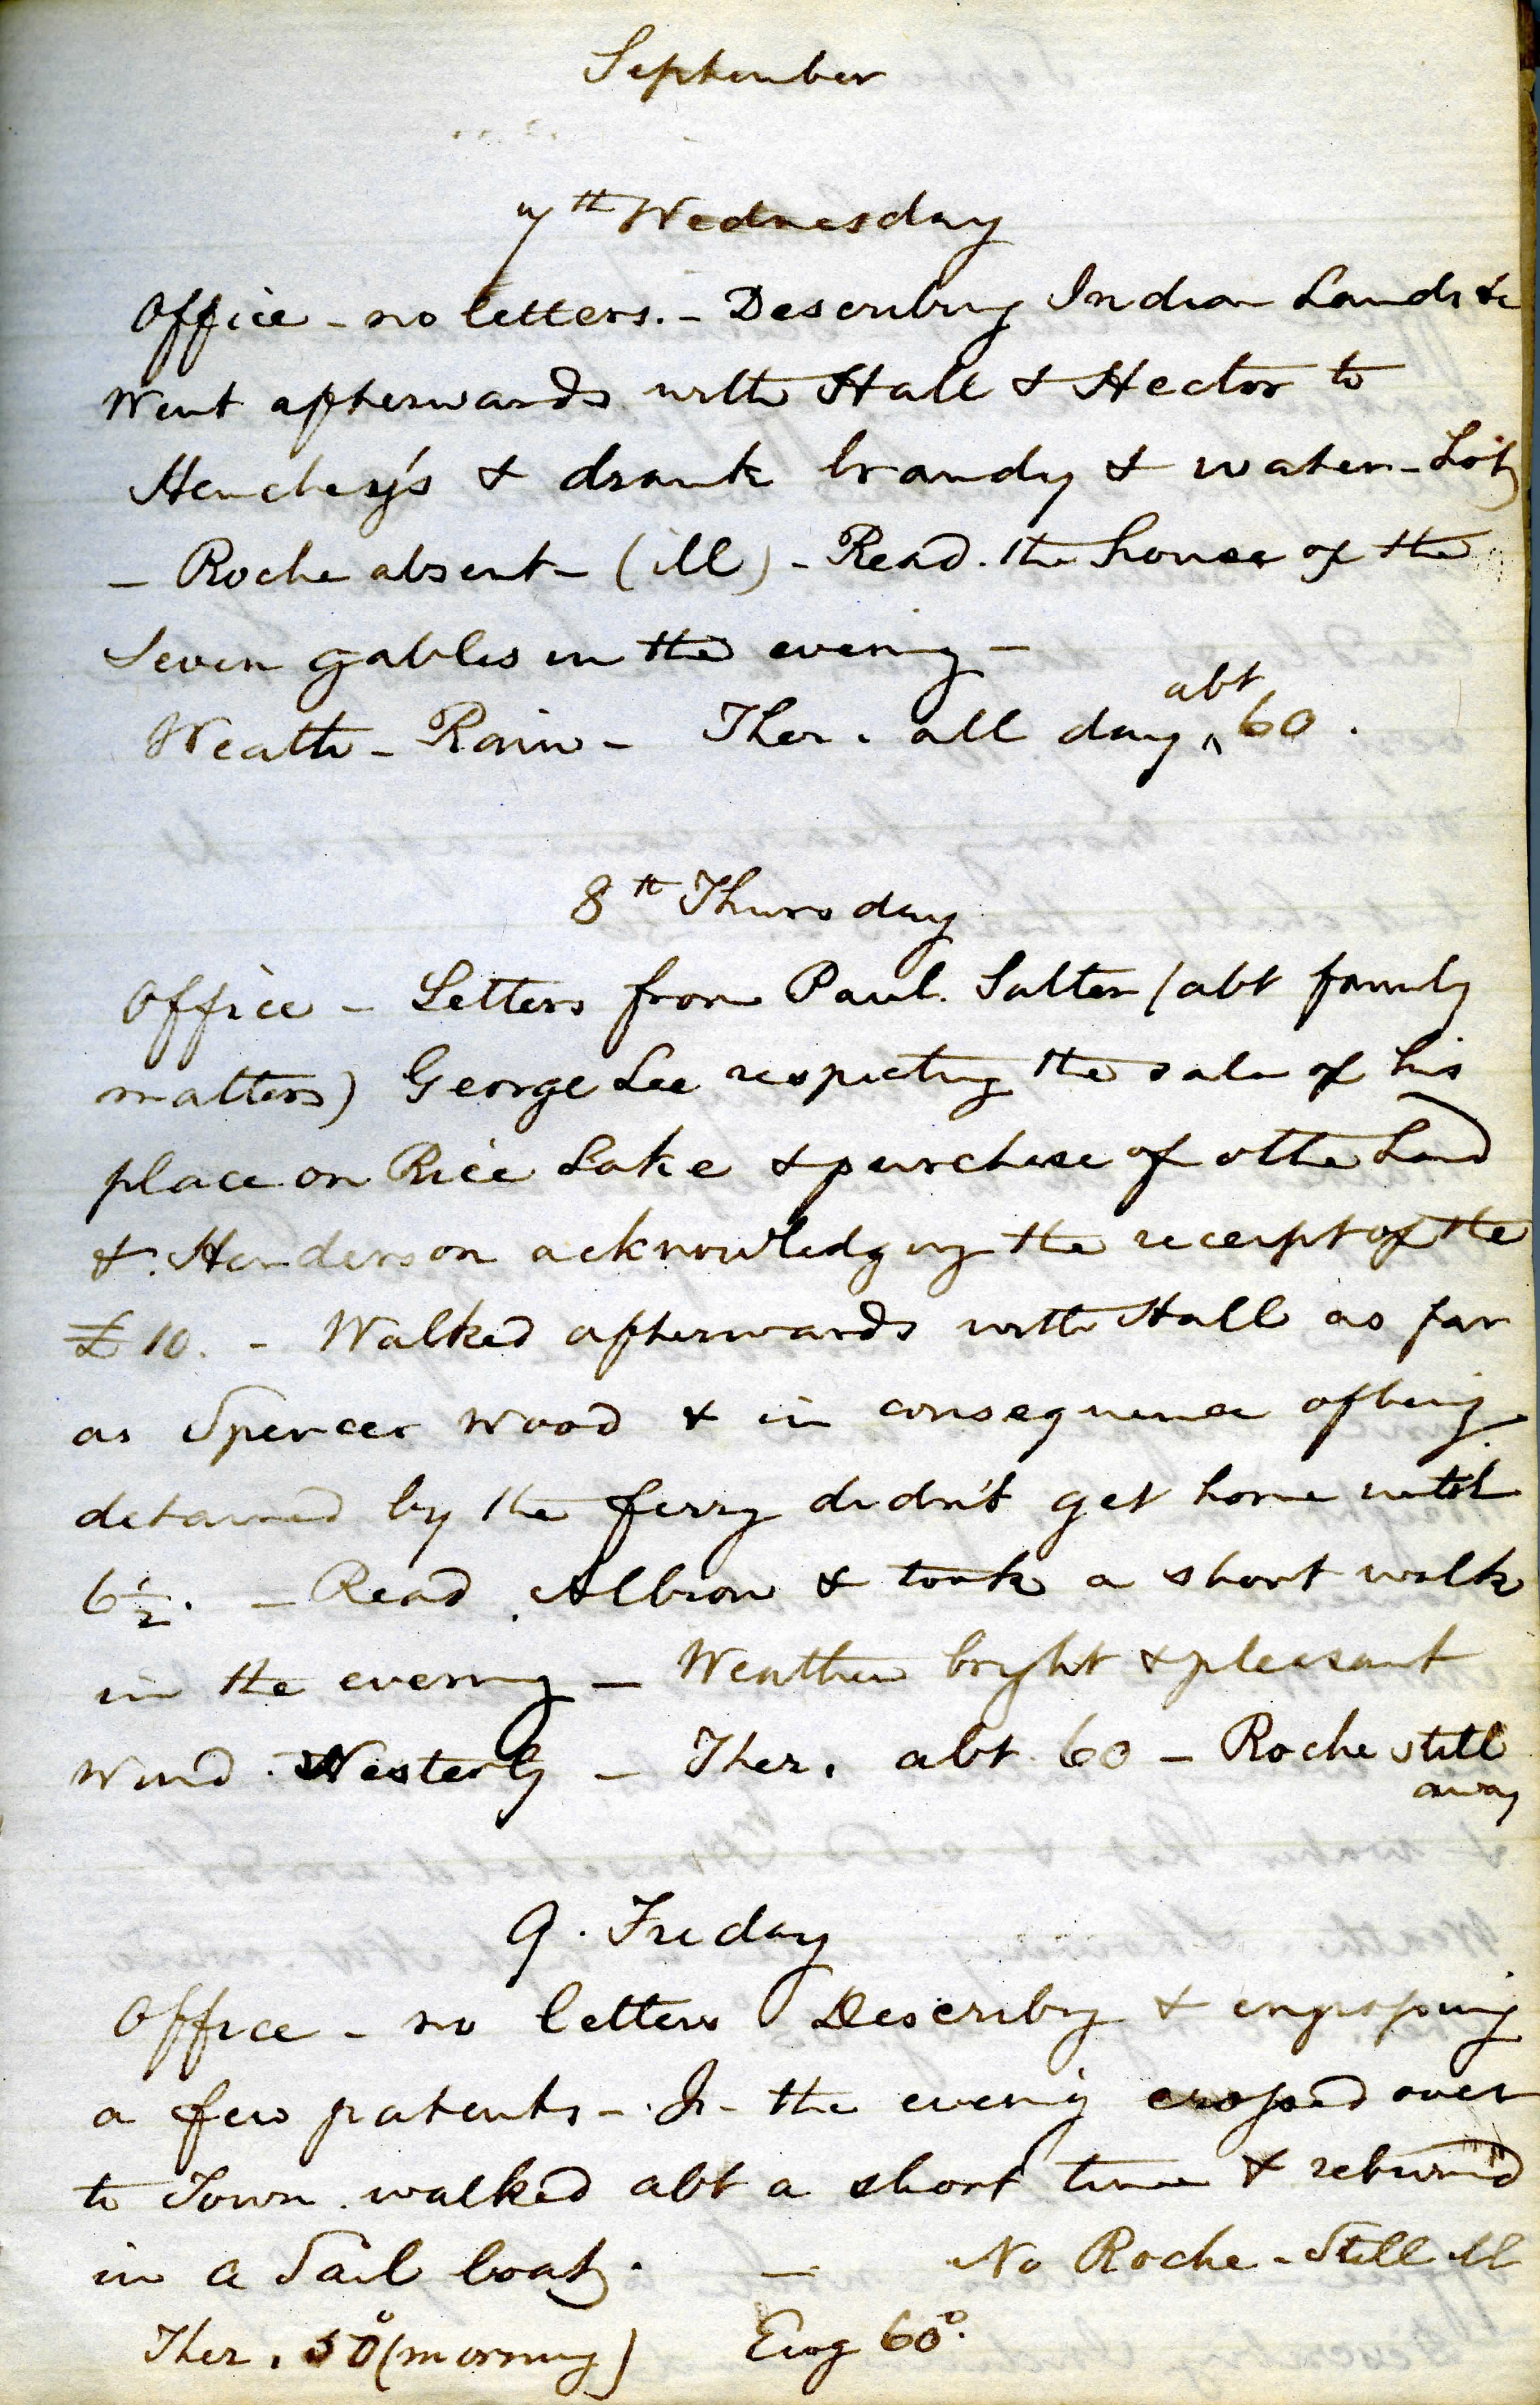 September
7th Wednesday
Office - no letters. - Describing Indian Lands &c
Went afterwards with Hall & Hector to
Henchey's & drank brandy & water - hot
- Roche absent - (ill) - Read the house of the
Seven gables in the evening -
Weathr - Rain - Ther. all day abt 60.
8th Thursday
Office - Letters from Paul. Salter (abt family
matters) George Lee respecting the sale of his
place on Rice Lake & purchase of other Land
& Henderson acknowledging the receipt of the
£10. - Walked afterwards with Hall as far
as Spencer Wood & in consequence of being
detained by the ferry didn't get home until
6½. - Read Albion & took a short walk
in the evening - Weather bright & pleasant
Wind Westerly - Ther. abt 60 - Roche still
away
9. Friday
Office - no letters Describing & engrossing
a few patents - In the evening crossed over
to Town walked abt a short time & returned
in a Sail boat. - No Roche - Still ill
Ther. 50° (morning) Evng 60°.